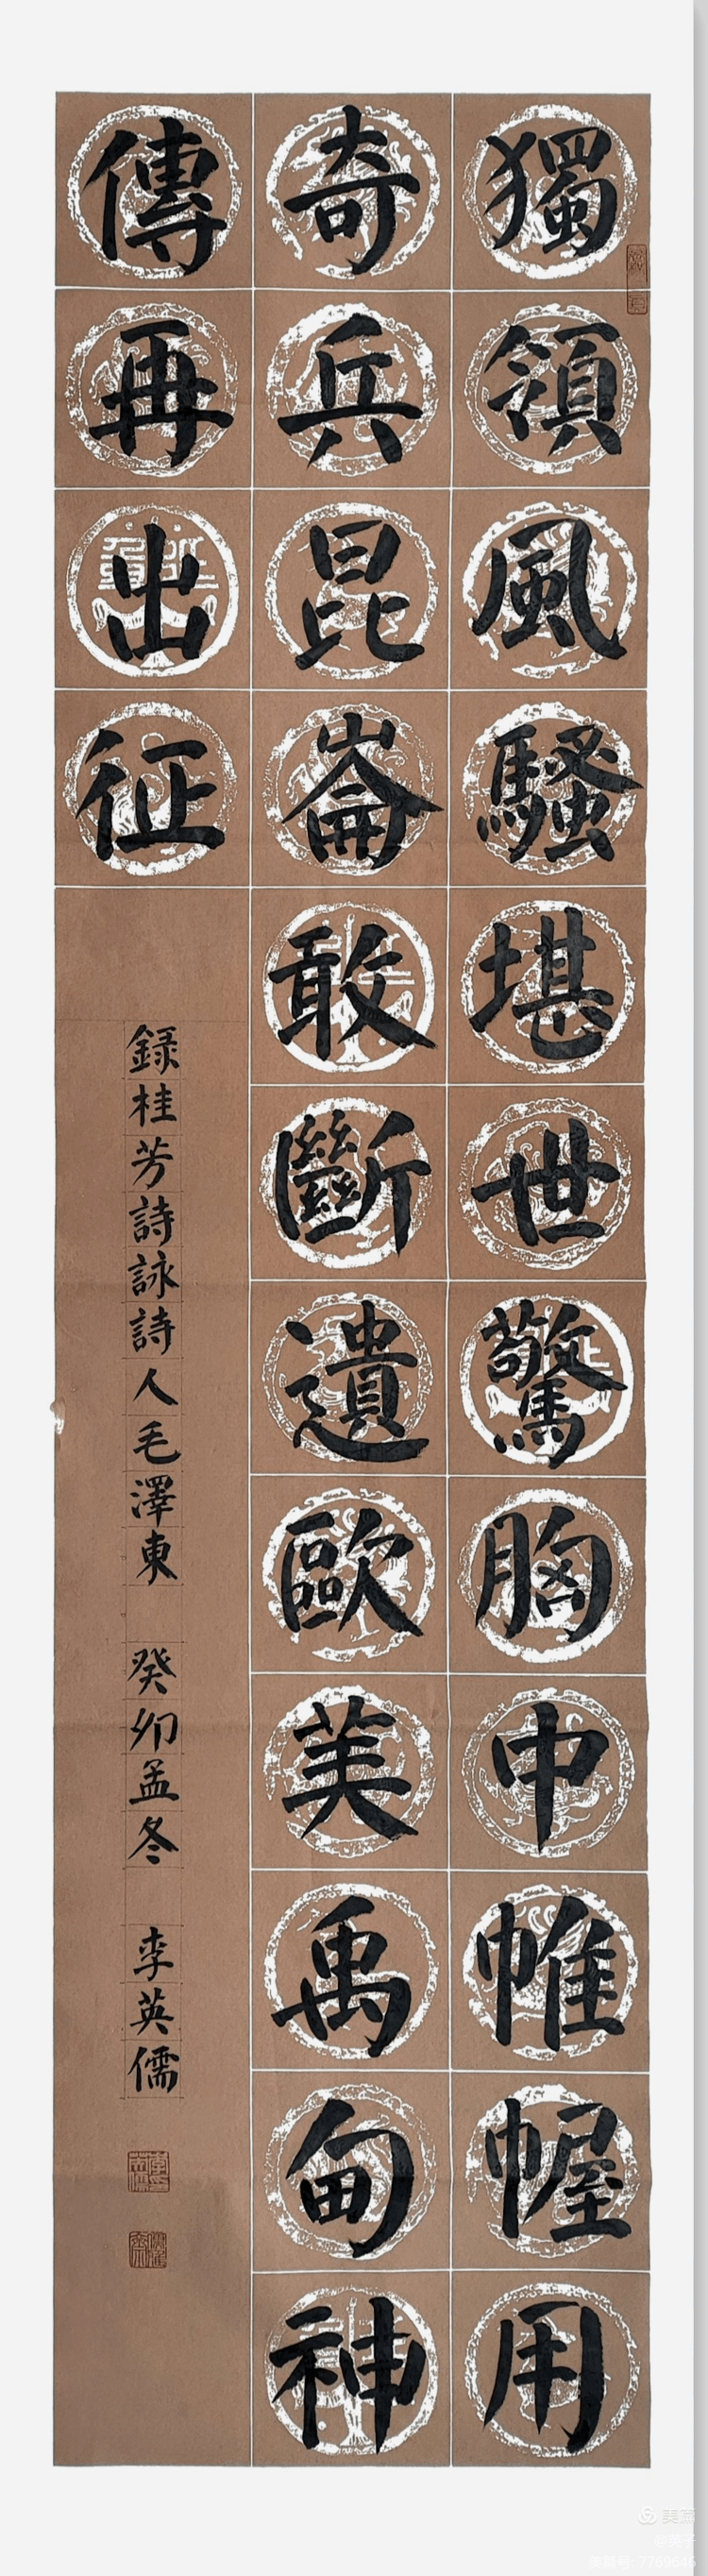 獨領風騷堪世驚胸中帷幄用
奇兵昆崙敢斷遺歐美禹甸神
傳再出征
録桂芳詩詠詩人毛澤東 癸卯孟冬 李英儒
美篇
@英子
美篇号: 7769646